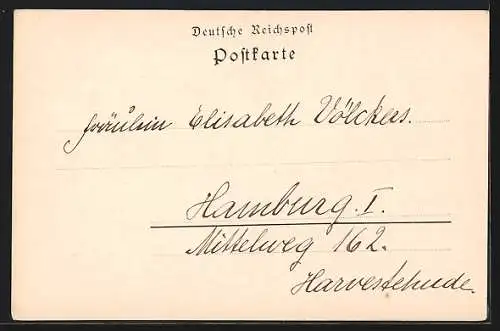 Deutsche Reichspost
Postkarte
Fräulein Elisabeth Völckers.
Hamburg. I.
Mittelweg 162.
Harvestehude.